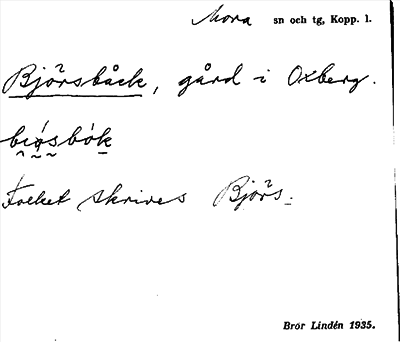 Mora sn och tg, Kopp. l.
Björsbäck, gård i Oxberg.
Folket skrives Björs.
Bror Lindén 1935.